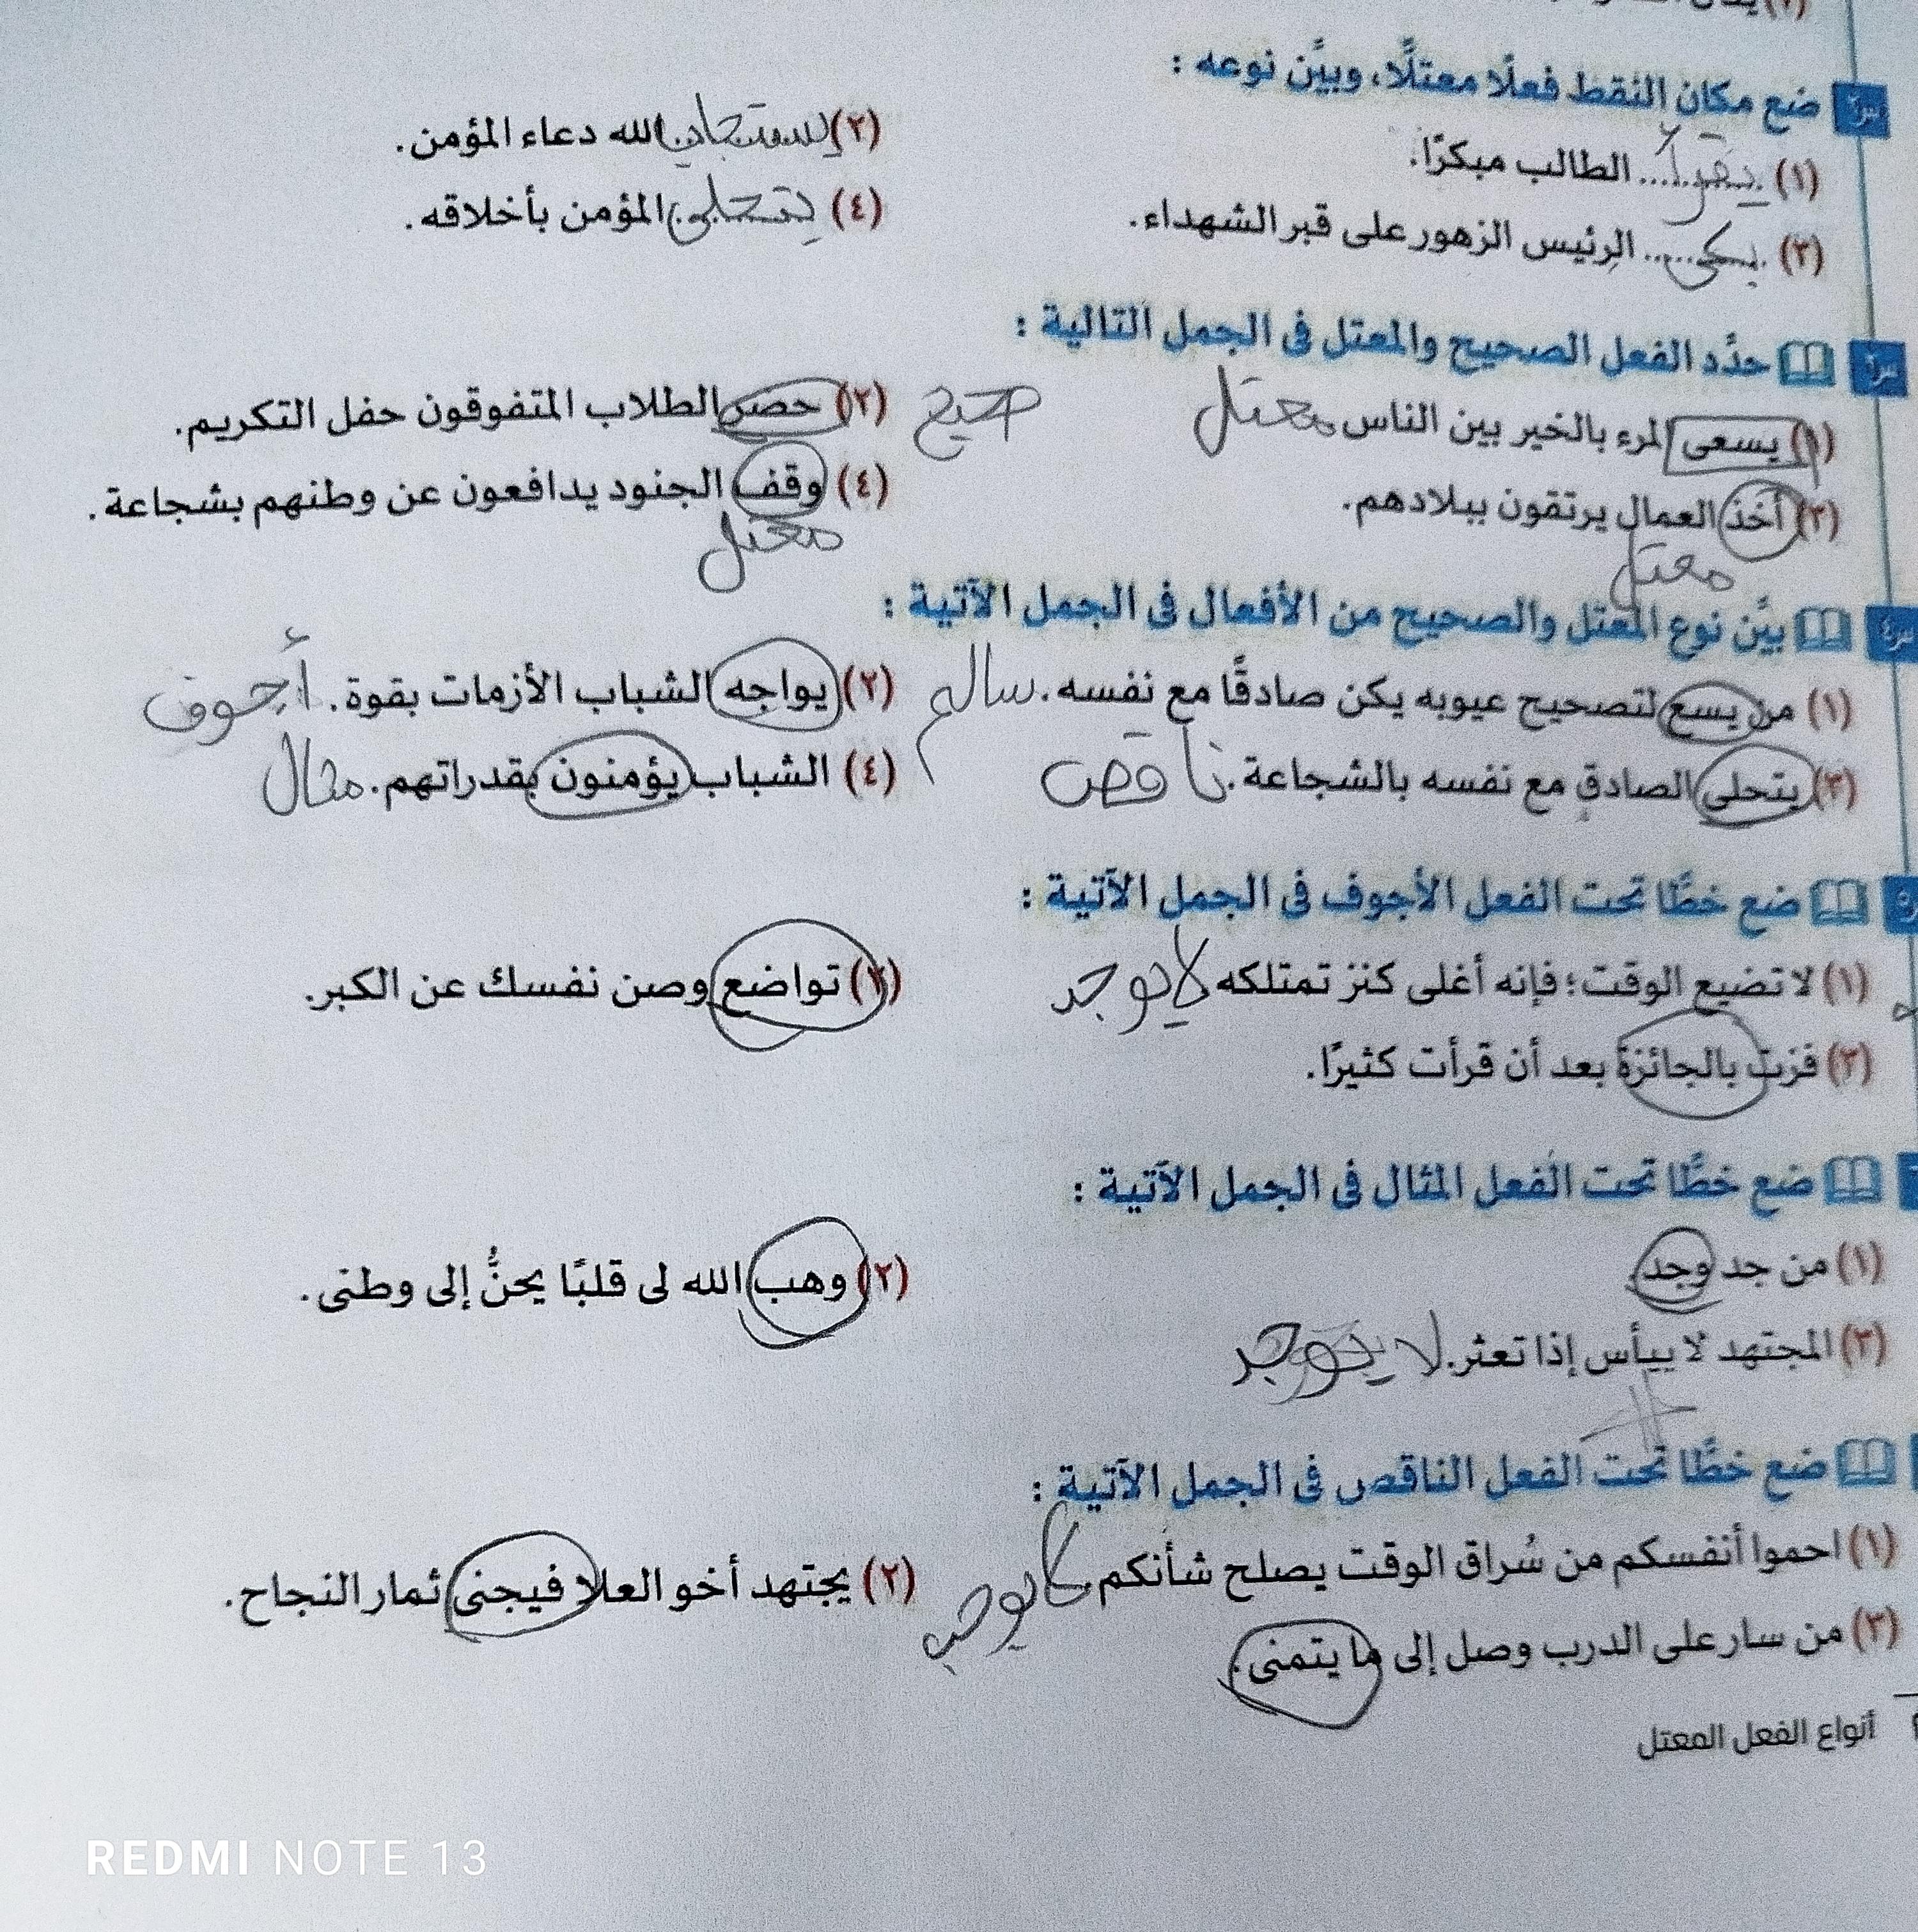 ضع مكان النقط فعلًا معتلًّا، وبيَّن نوعه :
(١) يقرأ الطالب مبكرًا.
(٢) الله دعاء المؤمن.
(٣) الرئيس الزهور على قبر الشهداء.
(٤) يتحلى المؤمن بأخلاقه.
س٣ حدَّد الفعل الصحيح والمعتل فى الجمل التالية :
(١) يسعى المرء بالخير بين الناس معتل
(٢) حضر الطلاب المتفوقون حفل التكريم. صحيح
(٣) أخذ العمال يرتقون ببلادهم.
معتل
(٤) وقف الجنود يدافعون عن وطنهم بشجاعة.
معتل
س٤ بيَّن نوع المعتل والصحيح من الأفعال فى الجمل الآتية :
(١) من يسع لتصحيح عيوبه يكن صادقًا مع نفسه. سالم
(٢) يواجه الشباب الأزمات بقوة. أجوف
(٣) يتحلى الصادق مع نفسه بالشجاعة. ناقص
(٤) الشباب يؤمنون بقدراتهم. مثال
ضع خطًّا تحت الفعل الأجوف فى الجمل الآتية :
(١) لا تضيع الوقت؛ فإنه أغلى كنز تمتلكه لا يوجد
(٢) تواضع وصن نفسك عن الكبر.
(٣) فزت بالجائزة بعد أن قرأت كثيرًا.
ضع خطًّا تحت الفعل المثال فى الجمل الآتية :
(١) من جد وجد
(٢) وهب الله لى قلبًا يحنُّ إلى وطنى.
(٣) المجتهد لا ييأس إذا تعثر. لا يوجد
ضع خطًّا تحت الفعل الناقص فى الجمل الآتية :
(١) احموا أنفسكم من سُراق الوقت يصلح شأنكم.
(٢) يجتهد أخو العلا فيجنى ثمار النجاح.
(٣) من سار على الدرب وصل إلى ما يتمنى.
أنواع الفعل المعتل
REDMI NOTE 13